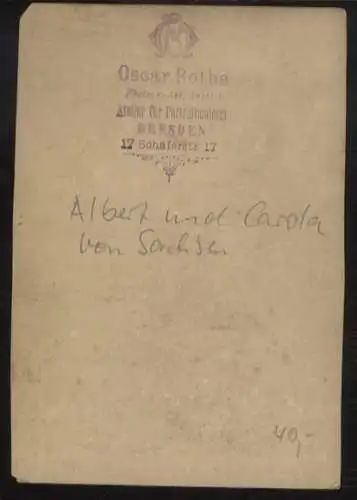 Oscar Rothe
Atelier für
DRESDEN
17 Schäferstr 17
Albert und Carola
von Sachsen
40,-